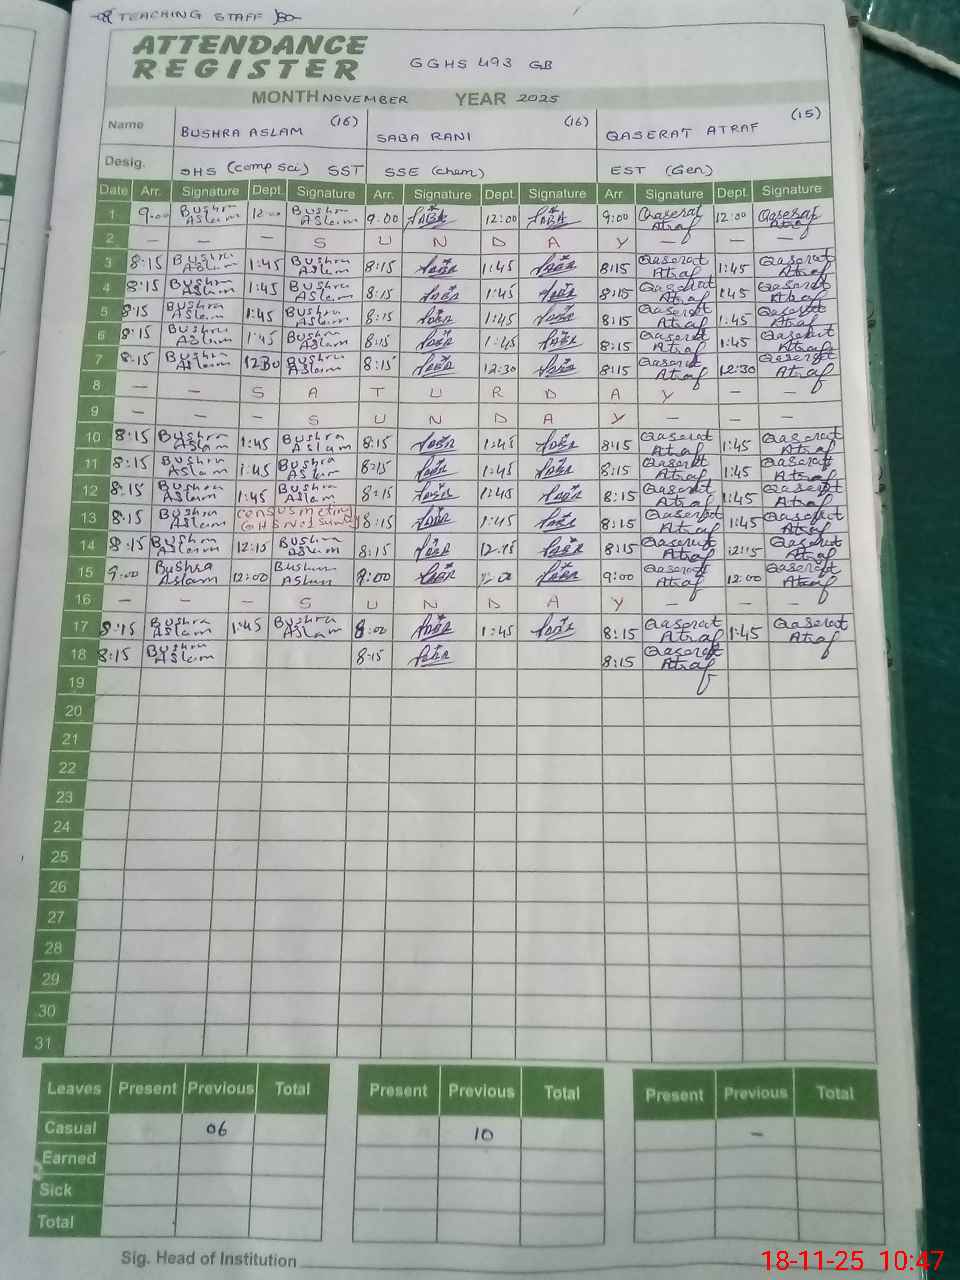 TEACHING STAFF
ATTENDANCE
REGISTER GGHS 493 GB
MONTH NOVEMBER YEAR 2025
Name BUSHRA ASLAM (16) SABA RANI (16) QASERAT ATRAF (15)
Desig. (comp Sci) SST SSE (chem) EST (Gen)
Date Arr. Signature Dept. Signature Arr. Signature Dept. Signature Arr. Signature Dept. Signature
1 9:00 Bushra Aslam 12:00 Bushra Aslam 9:00 SABA 12:00 SABA 9:00 Qaserat Atraf 12:00 Qaserat Atraf
2 — — — S U N D A Y — — —
3 8:15 Bushra Aslam 1:45 Bushra Aslam 8:15 Saba 1:45 Saba 8:15 Qaserat Atraf 1:45 Qaserat Atraf
4 8:15 Bushra Aslam 1:45 Bushra Aslam 8:15 Saba 1:45 Saba 8:15 Qaserat Atraf 1:45 Qaserat Atraf
5 8:15 Bushra Aslam 1:45 Bushra Aslam 8:15 Saba 1:45 Saba 8:15 Qaserat Atraf 1:45 Qaserat Atraf
6 8:15 Bushra Aslam 1:45 Bushra Aslam 8:15 Saba 1:45 Saba 8:15 Qaserat Atraf 1:45 Qaserat Atraf
7 8:15 Bushra Aslam 12:30 Bushra Aslam 8:15 Saba 12:30 Saba 8:15 Qaserat Atraf 12:30 Qaserat Atraf
8 — — S A T U R D A Y — —
9 — — — S U N D A Y — —
10 8:15 Bushra Aslam 1:45 Bushra Aslam 8:15 Saba 1:45 Saba 8:15 Qaserat Atraf 1:45 Qaserat Atraf
11 8:15 Bushra Aslam 1:45 Bushra Aslam 8:15 Saba 1:45 Saba 8:15 Qaserat Atraf 1:45 Qaserat Atraf
12 8:15 Bushra Aslam 1:45 Bushra Aslam 8:15 Saba 1:45 Saba 8:15 Qaserat Atraf 1:45 Qaserat Atraf
13 8:15 Bushra Aslam census meting 8:15 Saba 1:45 Saba 8:15 Qaserat Atraf 1:45 Qaserat Atraf
14 8:15 Bushra Aslam 12:15 Bushra Aslam 8:15 Saba 12:15 Saba 8:15 Qaserat Atraf 12:15 Qaserat Atraf
15 9:00 Bushra Aslam 12:00 Bushra Aslam 9:00 Saba Saba 9:00 Qaserat Atraf 12:00 Qaserat Atraf
16 — — — S U N D A Y — — —
17 8:15 Bushra Aslam 1:45 Bushra Aslam Saba 1:45 Saba 8:15 Qaserat Atraf 1:45 Qaserat Atraf
18 8:15 Bushra Aslam 8:15 Saba 8:15 Qaserat Atraf
19
20
21
22
23
24
25
26
27
28
29
30
31
Leaves Present Previous Total Present Previous Total Present Previous Total
Casual 06 10 —
Earned
Sick
Total
Sig. Head of Institution
18-11-25 10:47